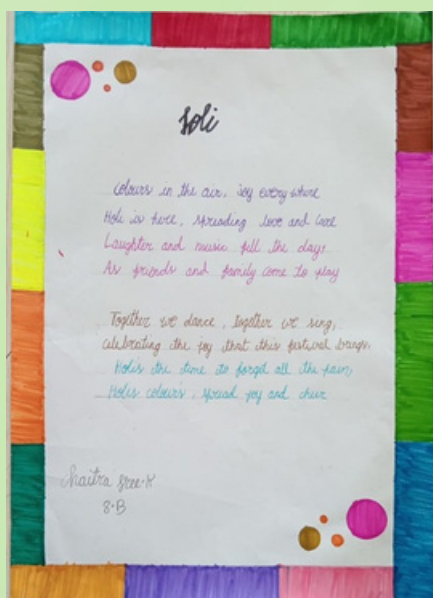 Holi
Colours in the air, joy every where
Holi is here, spreading love and care
Laughter and music fill the days
As friends and family come to play
Together we dance, together we sing,
celebrating the joy that this festival brings.
Holi's the time to forget all the pain,
Holi's colours, spread joy and cheer
Chaitra Sree.K
8.B